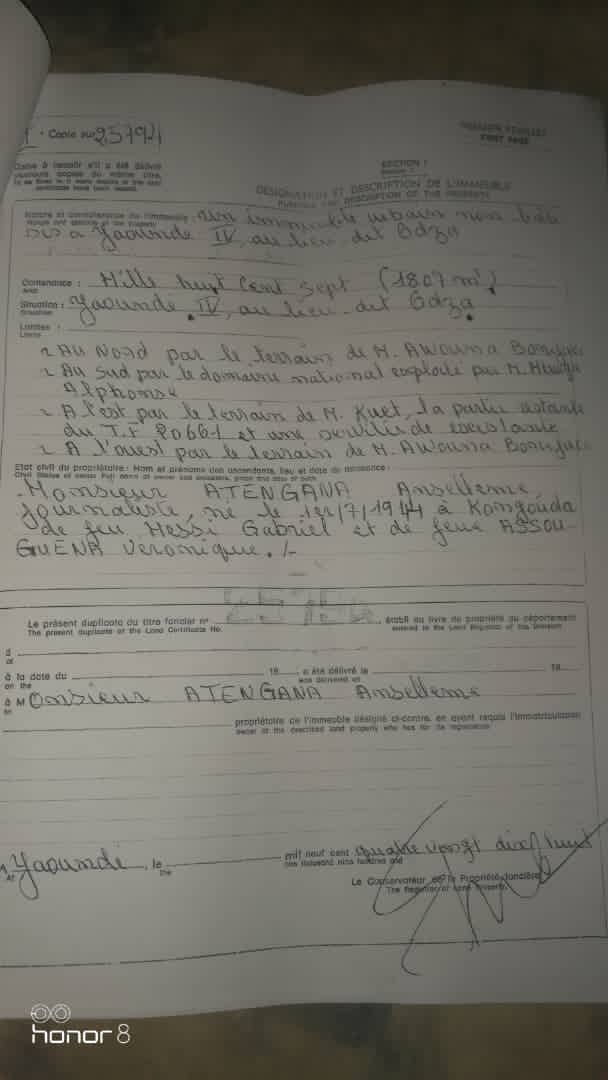 Copie sur 25794
PREMIER FEUILLET
FIRST PAGE
SECTION I
DESIGNATION ET DESCRIPTION DE L'IMMEUBLE
DESCRIPTION OF THE PROPERTY
Nature et consistance de l'immeuble : Un immeuble urbain non bâti
sis à Yaoundé IV, au lieu dit Odza
Contenance : Mille huit cent sept (1807 m²)
Area
Situation : Yaoundé IV, au lieu-dit Odza.
Situation
Limites :
Limits
Au Nord par le terrain de M. AWOUNA
Au Sud par le domaine national exploité par M.
Alphonse
A l'est par le terrain de M. Kuet, la partie
du T.F 20661 et une servitude
A l'ouest par le terrain de M. AWOUNA
Etat civil du propriétaire : Nom et prénoms des ascendants, lieu et date de naissance :
Monsieur ATENGANA Anselleme,
Journaliste, né le 1er/7/1944 à Kongouda
de feu Messi Gabriel et de feue ASSOU-
GUENA Véronique. /-
Le présent duplicata du titre foncier n° 25794, établi au livre de propriété du département
The present duplicate of the Land Certificate No. entered in the Land Register of the Division
d
of
à la date du 19 a été délivré le 19
on the was delivered on
à Monsieur ATENGANA Anselleme
to
propriétaire de l'immeuble désigné ci-contre, en ayant requis l'immatriculation
owner of the described land property who has for its registration
A Yaoundé, le mil neuf cent quatre vingt dix huit
At the nine hundred and
Le Conservateur de la Propriété foncière
The Registrar of Land
honor 8